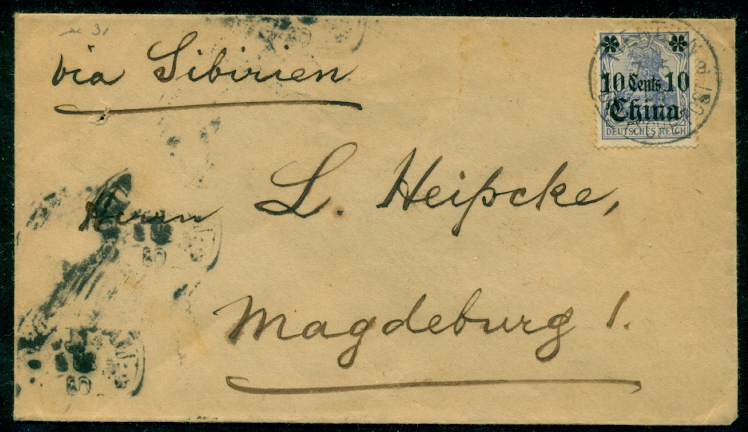 via Sibirien
10 Cents 10
China
DEUTSCHES REICH
Herrn L. Heißcke,
Magdeburg 1.